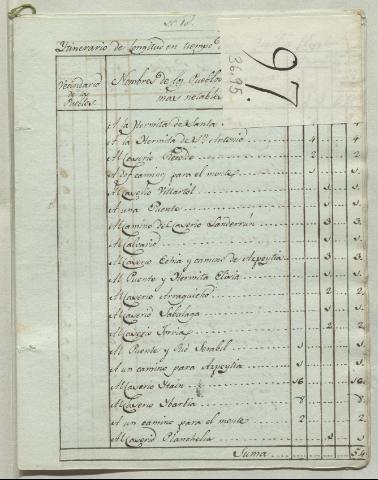 N.º 18.
Itinerario de longitud en tiempo
97.
36,95
Vecindario de los Pueblos
Nombres de los Pueblos mas notables
A la Hermita de Santa
A la Hermita de Sn. Antonio 4 4
Al Caserio 2 2
A dos caminos para el monte 1 1
Al Caserio Villartol 1 1
A una Puente 1 1
Al camino del Caserio Landerrun 3 3
Al Calvario 1 1
Al Caserio Echia y camino de Azpeytia 3 3
Al Puente y Hermita Eloia 1 1
Al Caserio Arraguecho 2 2
Al Caserio Sabalaga 1 1
Al Caserio Torria 2 2
Al Puente y Rio Serabil 1 1
A un camino para Azpeytia 1 1
Al Caserio Itain 16 16
Al Caserio Ibartia 8 8
A un camino para el monte 2 2
Al Caserio Planchelia 1 1
Suma 54